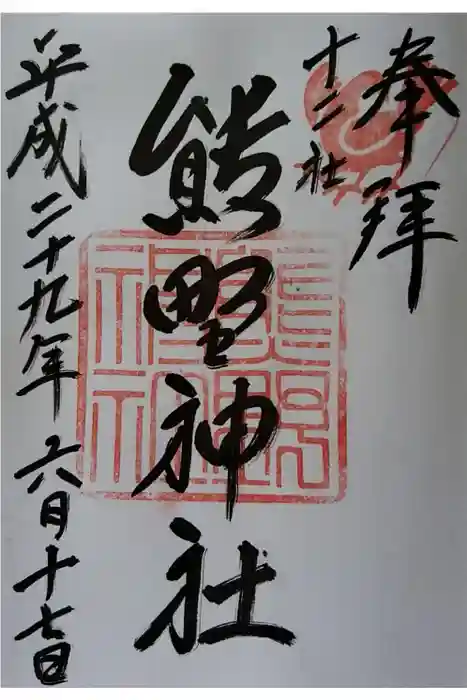 奉拝
十二社
熊野神社
平成二十九年六月十七日